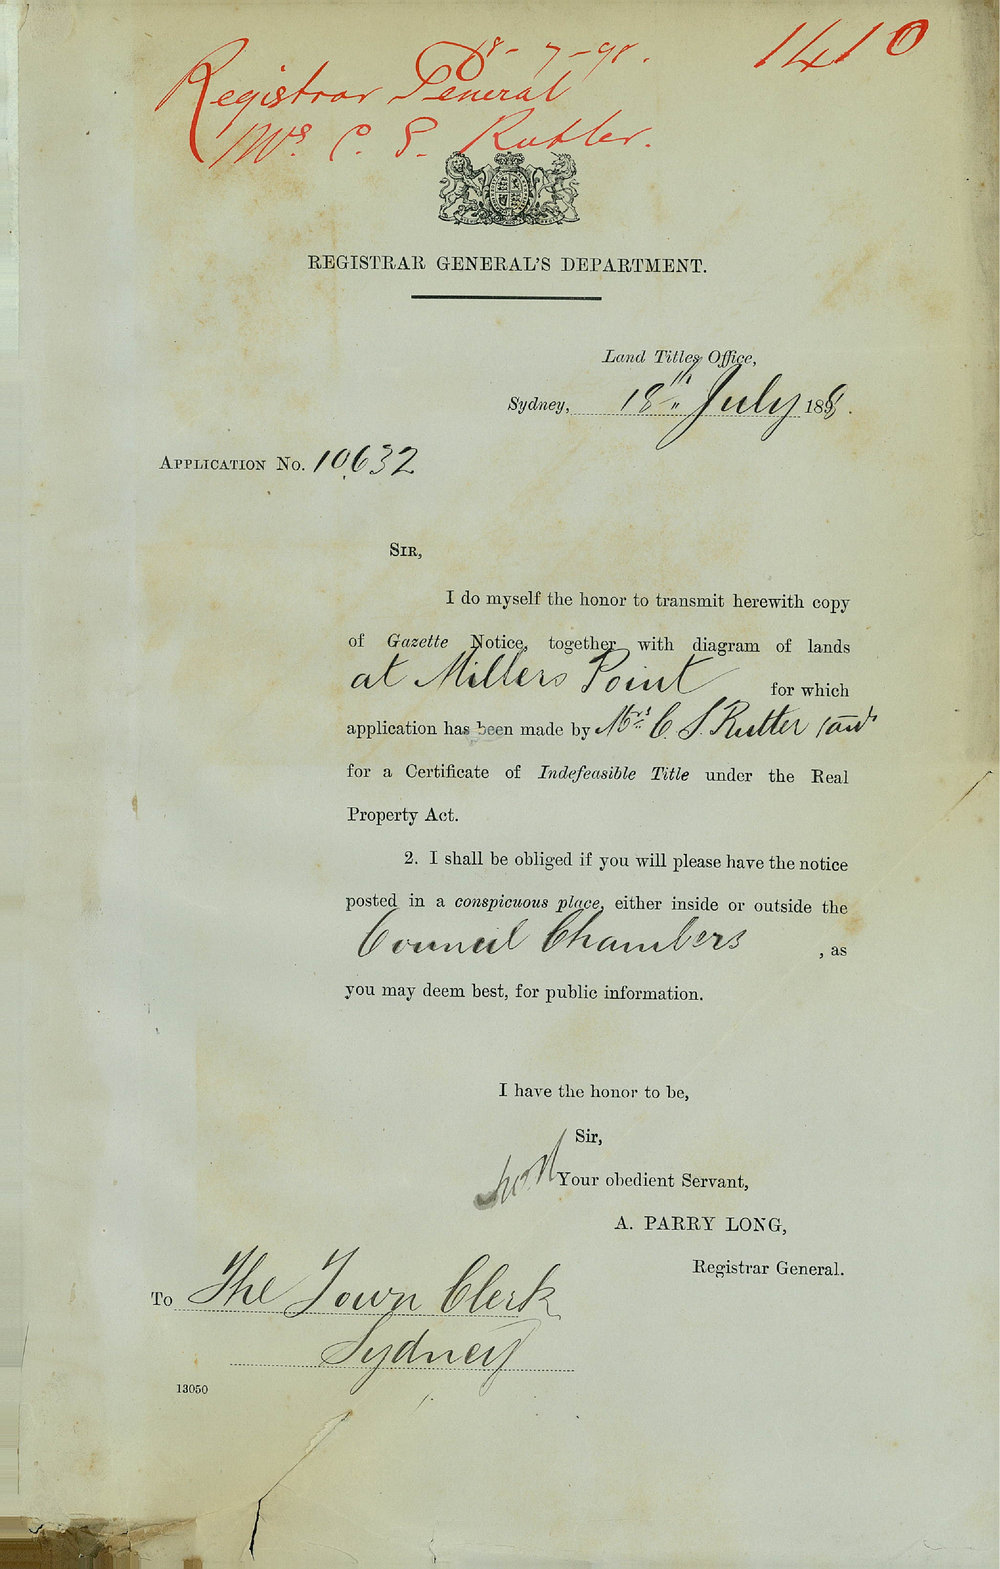 18-7-98.
1410
Registrar General
Mrs. C. S. Rutter.
REGISTRAR GENERAL'S DEPARTMENT.
Land Titles Office,
Sydney, 18th July 1898.
APPLICATION No. 10632
SIR,
I do myself the honor to transmit herewith copy
of Gazette Notice, together with diagram of lands
at Millers Point for which
application has been made by Mrs. C. S. Rutter
for a Certificate of Indefeasible Title under the Real
Property Act.
2. I shall be obliged if you will please have the notice
posted in a conspicuous place, either inside or outside the
Council Chambers, as
you may deem best, for public information.
I have the honor to be,
Sir,
Your obedient Servant,
A. PARRY LONG,
Registrar General.
To The Town Clerk
Sydney
13050